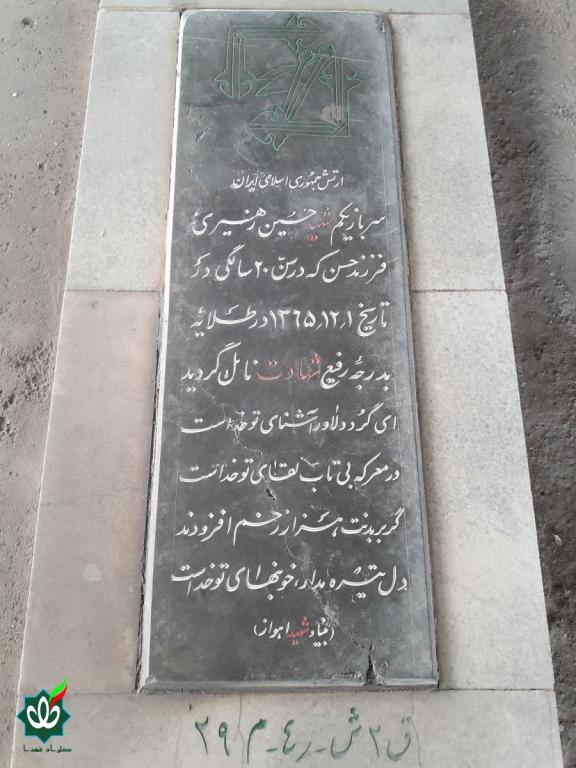 ارتش جمهوری اسلامی ایران
سرباز یکم شهید حسین رهنسیری
فرزند حسن که در سن ۲۰ سالگی در
تاریخ ۱۳۶۵٫۱۲٫۱ در طلایه
بدرجه رفیع شهادت نائل گردید
ای گرد دلاور آشنای تو خداست
در معرکه بی تاب لقای تو خداست
گر بر بدنت هزار زخم افزودند
دل تیره مدار، خونبهای تو خداست
(بنیاد شهید اهواز)
ق ۲ ش - ر ٤ - م ۲۹
گلزار شهدا